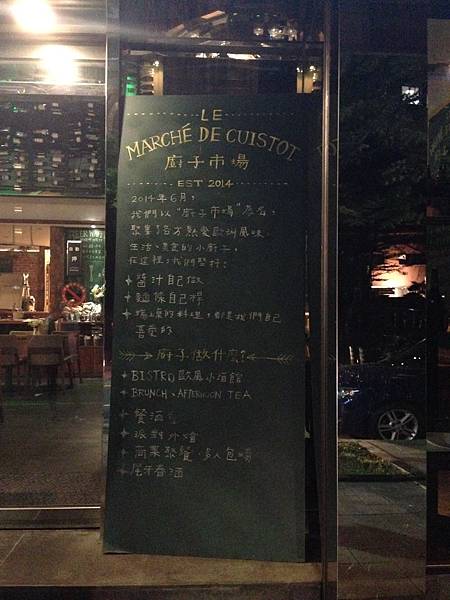 LE
MARCHÉ DE CUISTOT
廚子市場
EST 2014
2014年6月,
我們以"廚子市場"為名,
聚集了各方熱愛歐洲風味
生活、美食的小廚子,
在這裡,我們堅持:
醬汁自己做
麵條自己桿
端上桌的料理,都是我們自己
喜愛的
廚子做什麼?
BISTRO 歐風小酒館
BRUNCH、AFTERNOON TEA
餐酒
派對外燴
商業聚餐、多人包場
尾牙春酒